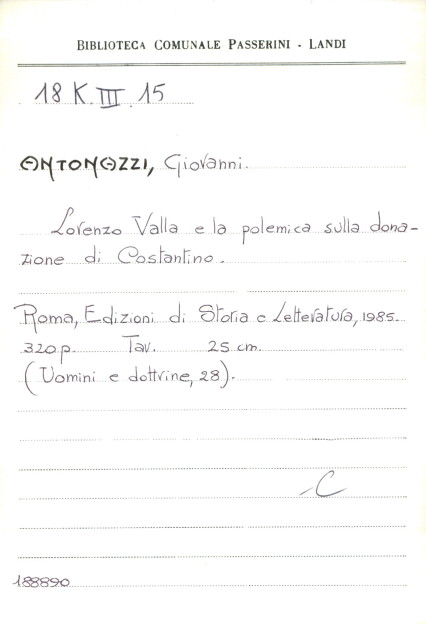 BIBLIOTECA COMUNALE PASSERINI - LANDI
18 K. III. 15
ANTONAZZI, Giovanni.
Lorenzo Valla e la polemica sulla dona-
zione di Costantino.
Roma, Edizioni di Storia e Letteratura, 1985.
320 p. Tav. 25 cm.
(Uomini e dottrine, 28).
C
188890